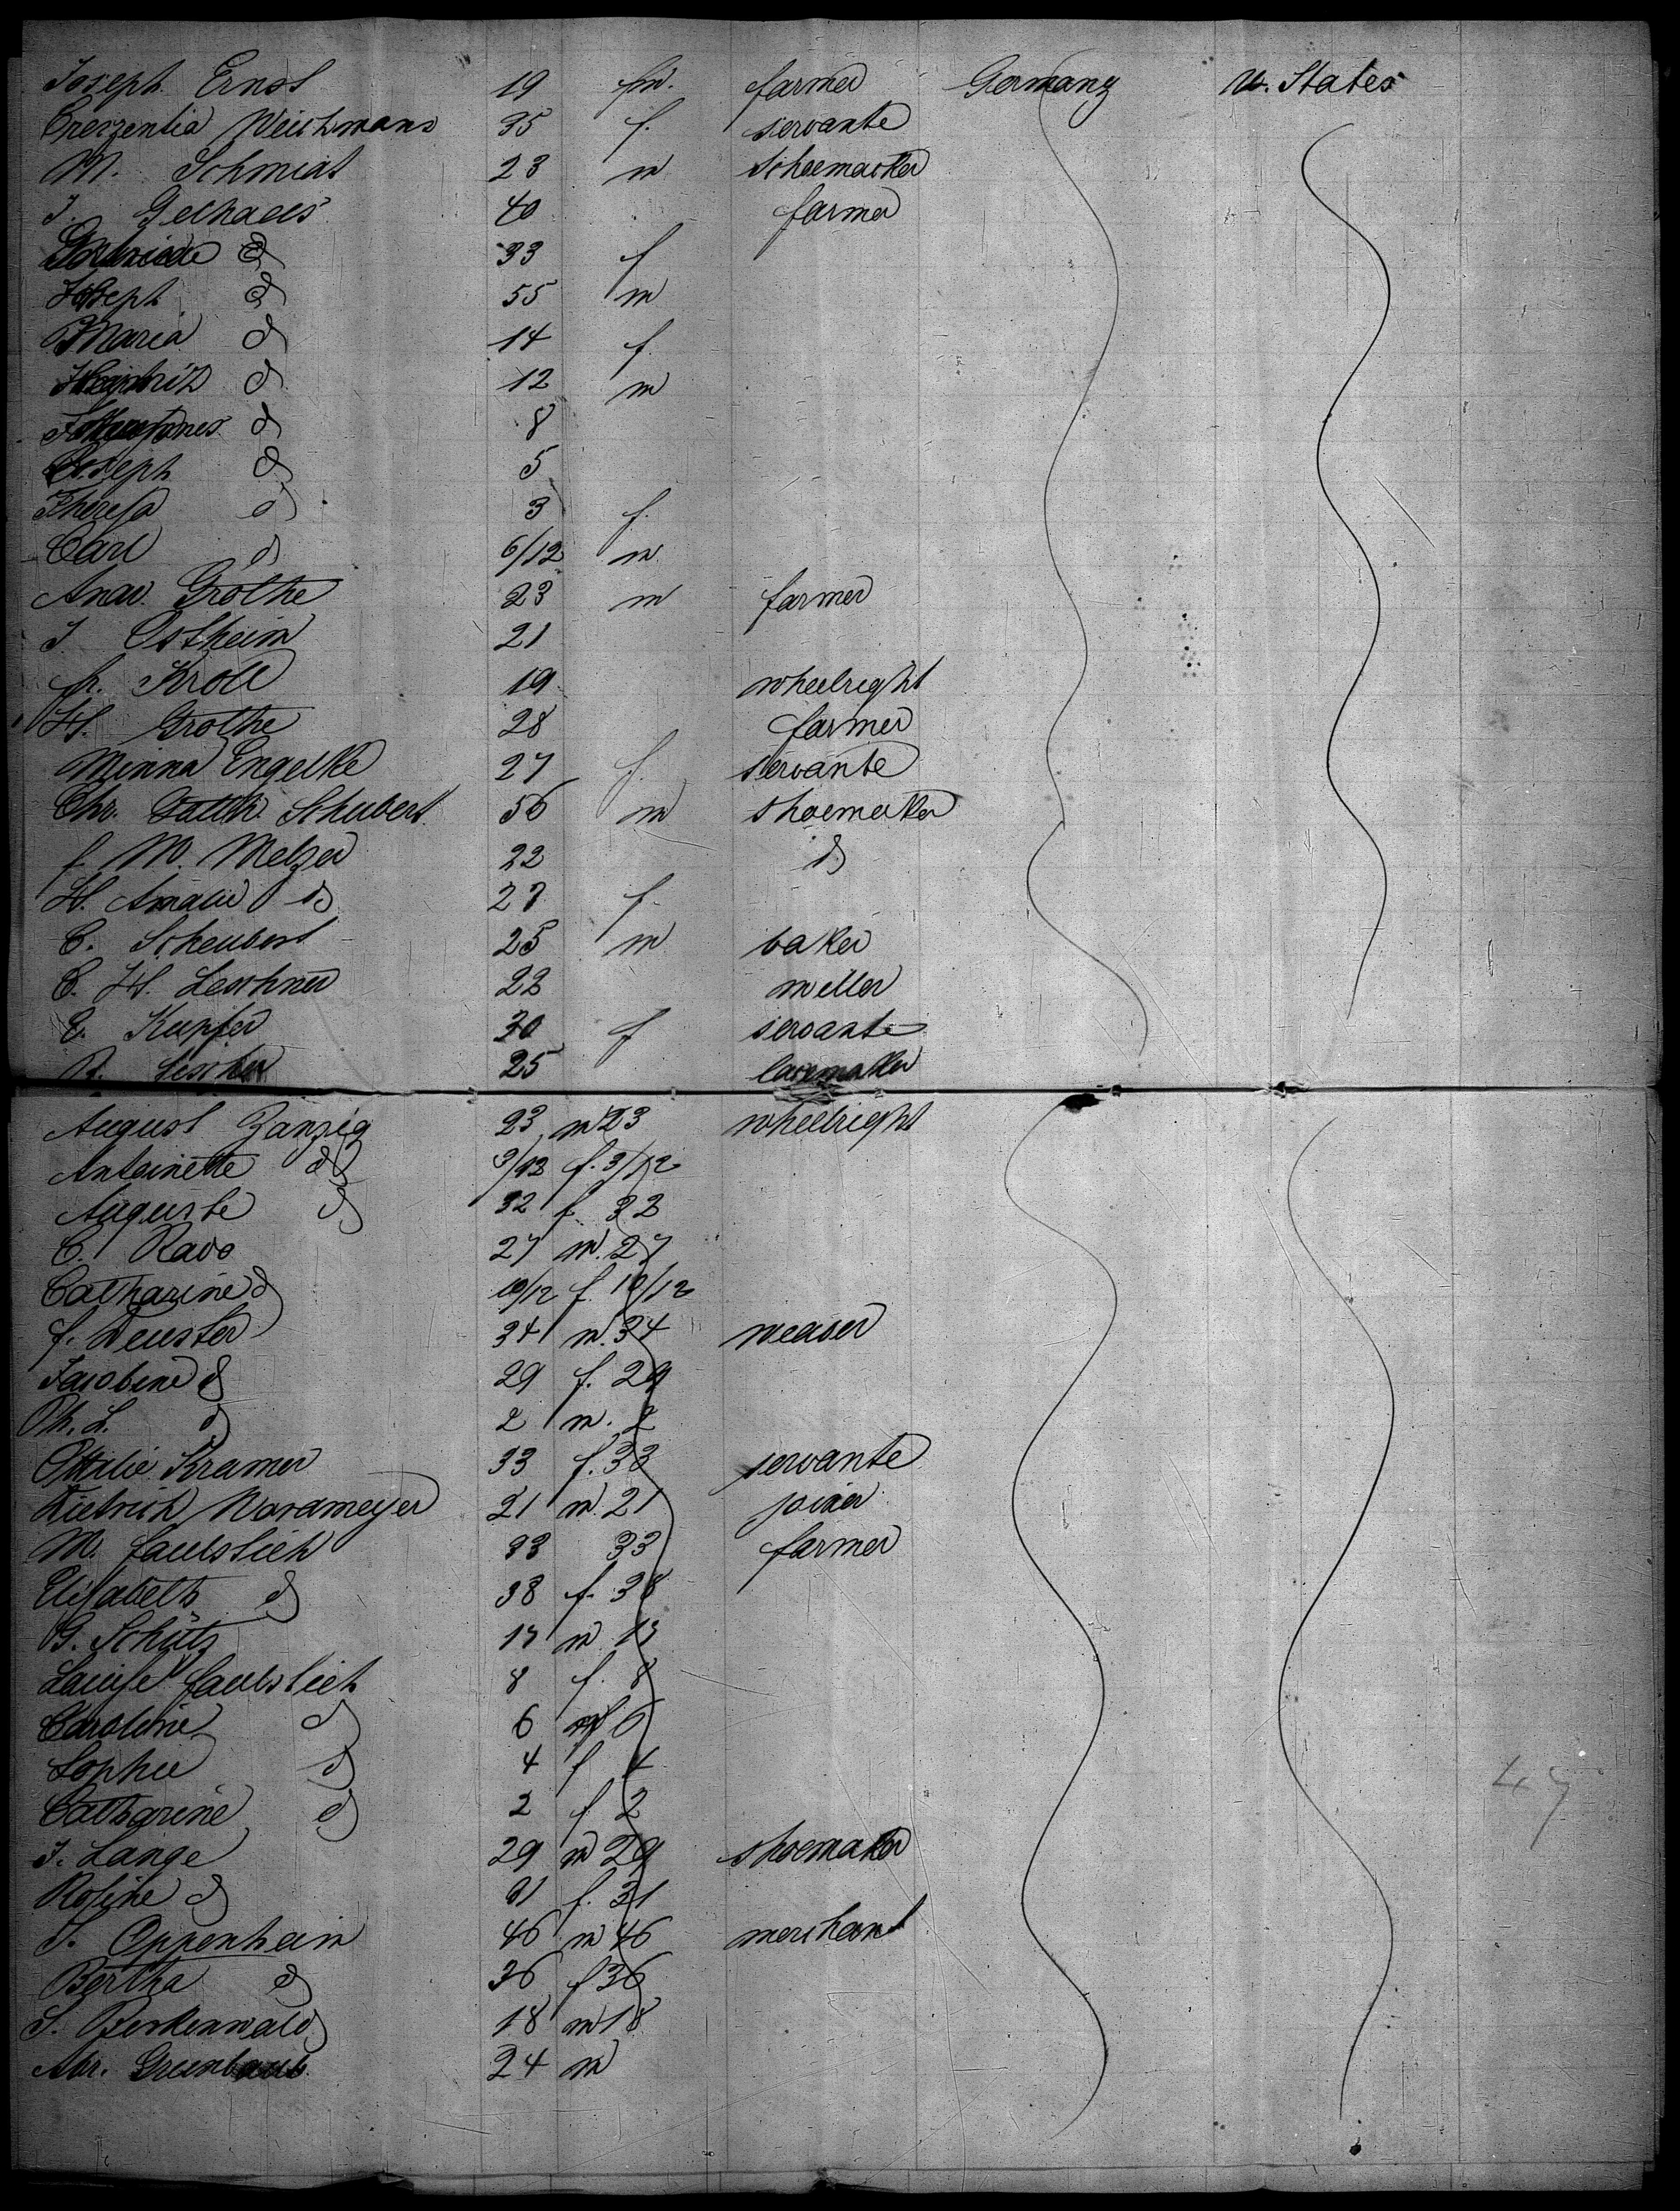 Joseph Ernst 19 m. farmer Germany U. States
Crerzentia Weichmann 35 f. servante
M. Schmidt 23 m scheemacker
J. Gelhaeis 40 farmer
do 33 f
Joseph do 55 m
Maria do 14 f.
Heinrich do 12 m
do 8
Joseph do 5
Theresa do 3 f.
Carl do 6/12 m
Andr. Grothe 23 m farmer
J. Ostheim 21
fr. Kroll 19 wheelright
H. Grothe 28 farmer
Minna Engelke 27 f. servante
Chr. Gottlh. Schubert 56 m shoemaker
f. M. Melzer 22 do
H. Amalie do 27 f.
C. Scheubert 25 m baker
C. H. Leschner 22 miller
E. Kupfer 30 f servante
25 lacemaker
August Zanzig 23 m 23 wheelright
Antoinette do 3/12 f. 3/12
Auguste do 32 f. 32
C. Rado 27 m. 27
Catharine do 10/12 f. 10/12
f. Deuster 34 m. 34 weaver
Jacobine do 29 f. 29
Ph. L. do 2 m. 2
Ottilie Kramer 33 f. 33 servante
Dietrich Nordmeyer 21 m. 21 joiner
M. faulstich 33 33 farmer
Elisabeth do 38 f. 38
G. Schütz 17 m 17
Louise faulstich 8 f. 8
Caroline do 6 f 6
Sophie do 4 f 4
Catharine do 2 f 2
J. Lange 29 m 29 shoemaker
Rosine do 31 f. 31
S. Oppenheim 46 m 46 merchant
Bertha do 36 f 36
S. Berkenwald 18 m 18
Abr. 24 m
47